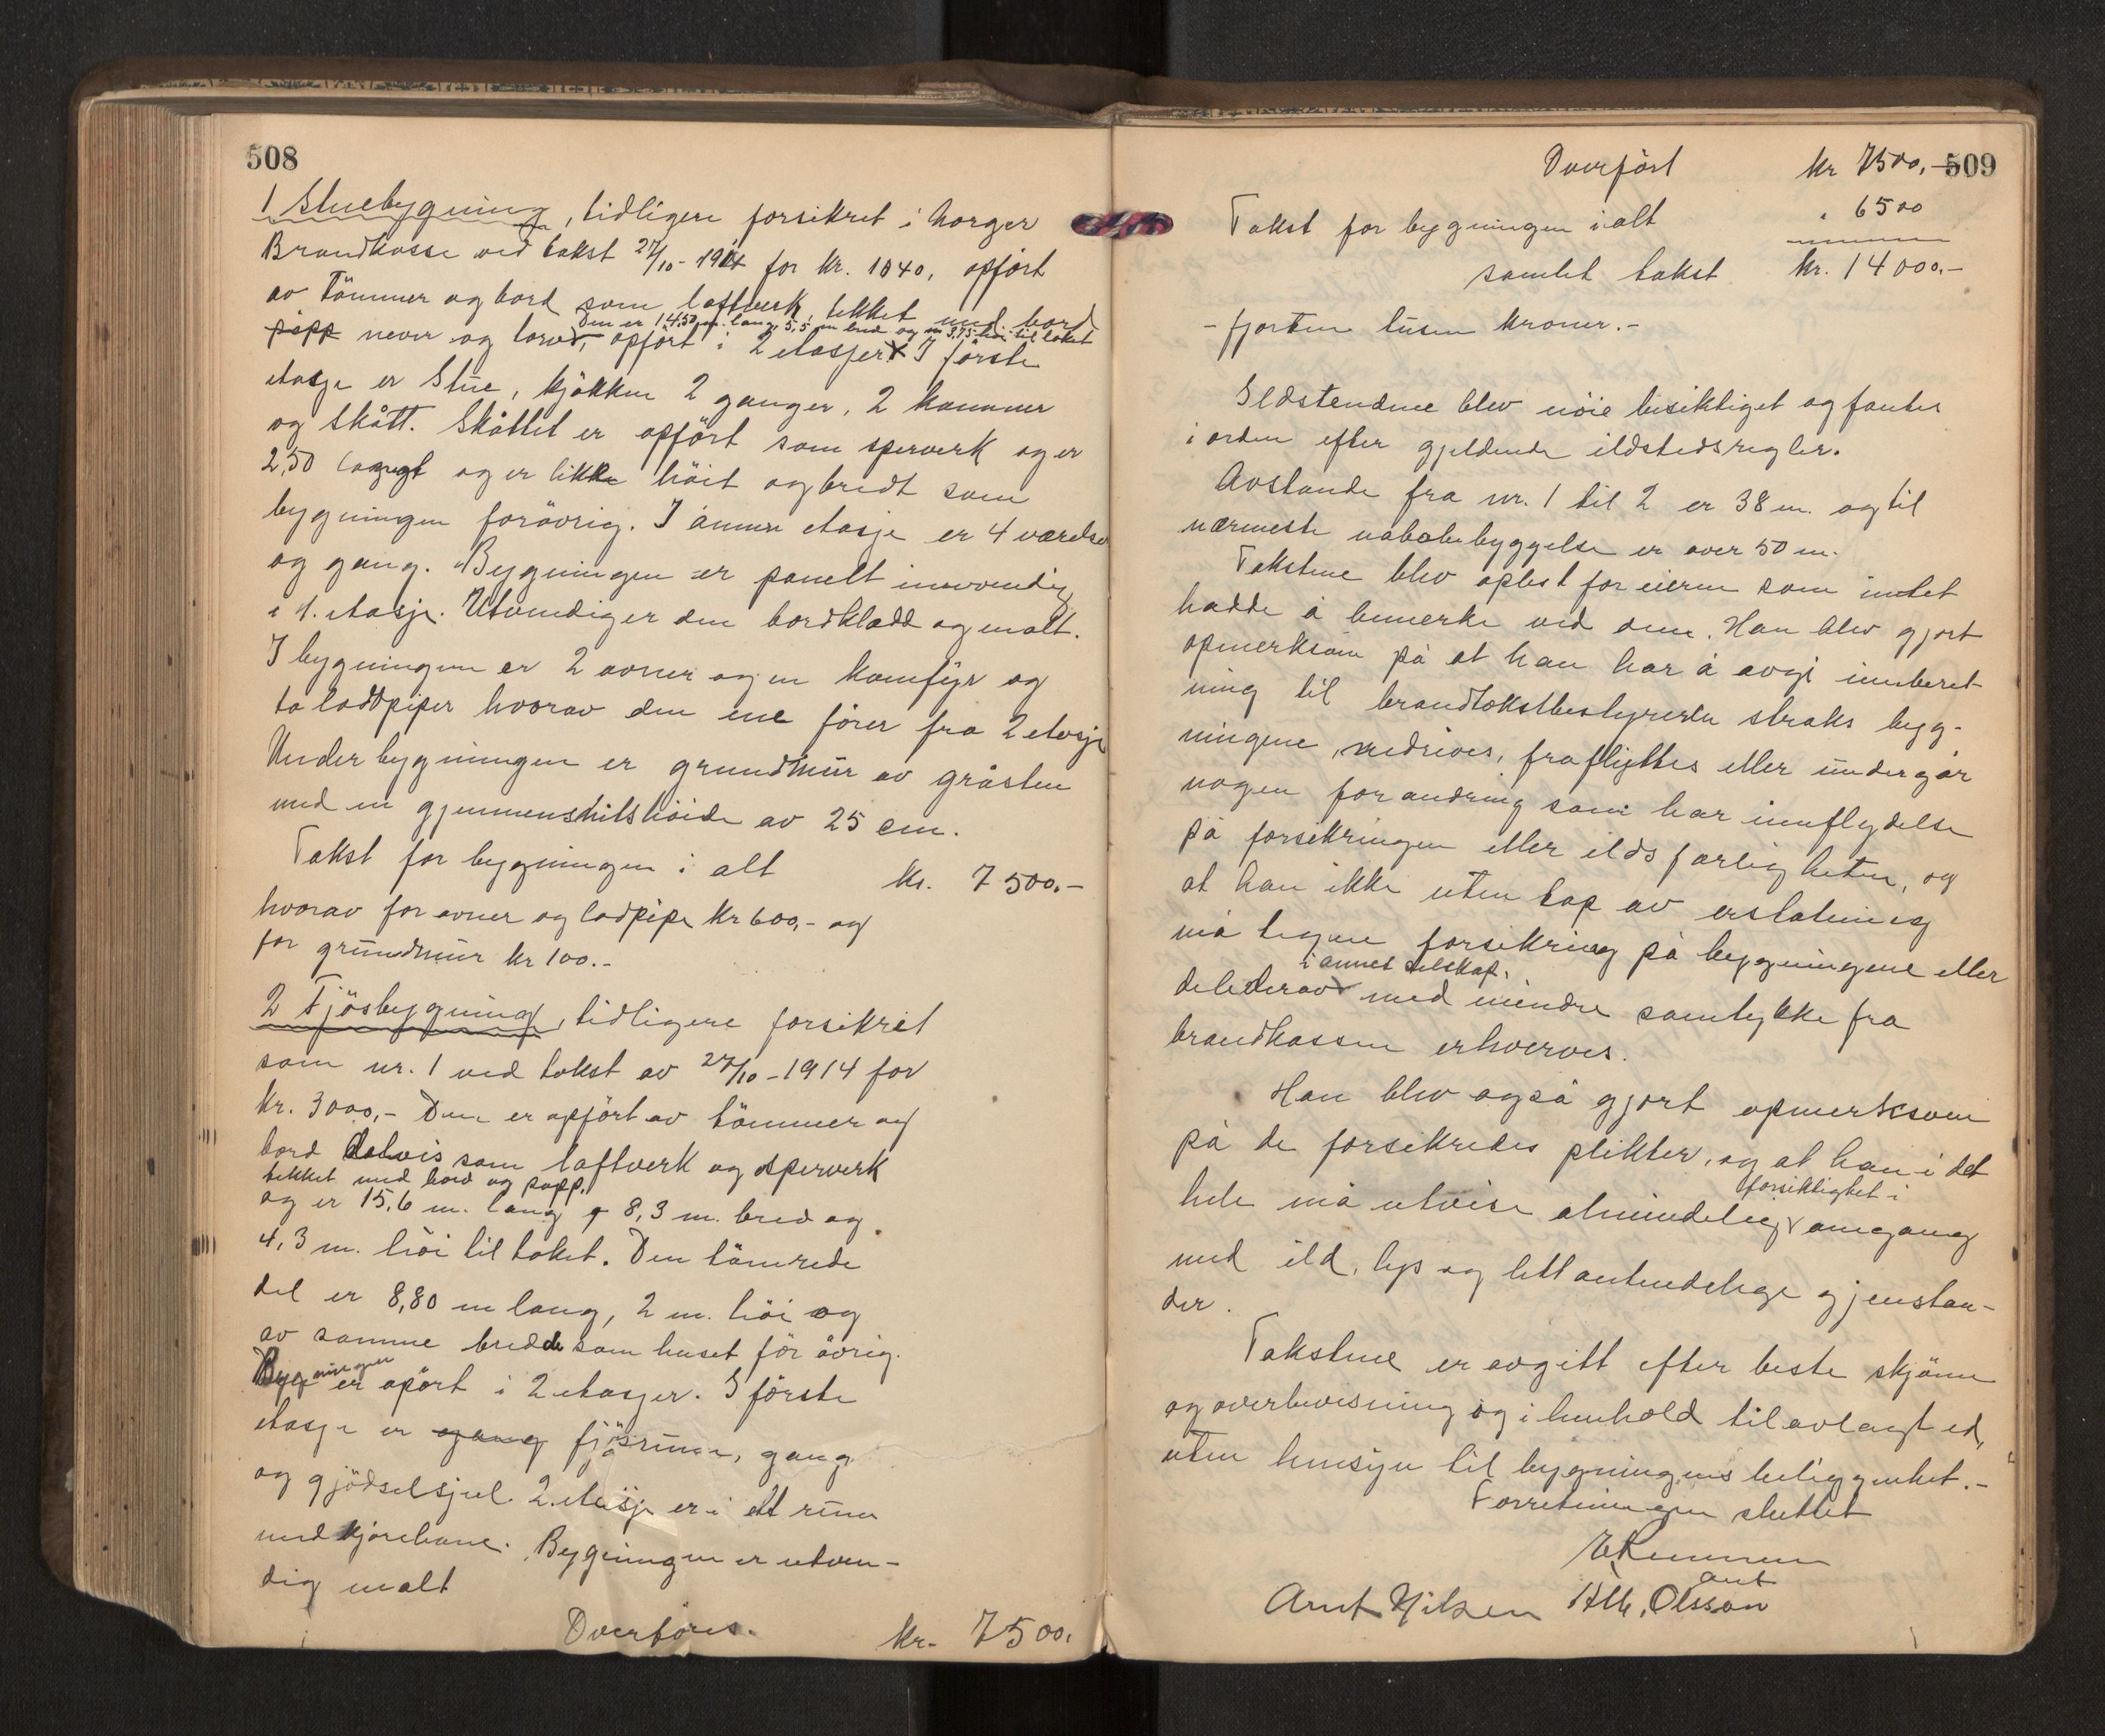 508
1 Stuebygning, tidligere forsikret i Norges
Brandkasse ved takst 27/10-1914 for kr. 1040, opfört
av Tömmer og bord som laftverk, tekket med bord
Den er 14,50 m. lang, 5,5 m bred og 3,75 höi til taket
papp never og torv, opfört i 2 etasjer. I förste
etasje er Stue, kjökken 2 ganger, 2 kammer
og skått. Skåttet er opfört som sperverk og er
2,50 langt og er likke höit og bredt som
bygningen forövrig. I annen etasje er 4 værelser
og gang. Bygningen er panelt innvendig
i 1. etasje. Utvendig er den bordkledd og malt.
I bygningen er 2 ovner og en komfyr og
to loddpiper hvorav den ene förer fra 2 etasje
Under bygningen er grundmur av gråsten
med en gjennemsnitshöide av 25 cm.
Takst for bygningen i alt kr. 7500.-
hvorav for ovner og lodpipe kr 600,- og
for grundmur kr 100.-
2 Fjösbygning, tidligere forsikret
som nr. 1 ved takst av 27/10-1914 for
kr. 3000,- Den er opfört av tömmer og
bord delvis som laftverk og sperverk
tekket med bord og papp.
og er 15,6 m. lang 8,3 m. bred og
4,3 m. höi til taket. Den tömrede
del er 8,80 m lang, 2 m. höi og
av samme bredde som huset för övrig.
Bygningen er opört i 2 etasjer. I förste
etasje er gang fjösrum, gang
og gjödselsjul. 2. etasje er i ett rum
med kjörebane. Bygningen er utven-
dig malt
Overföres. kr. 7500.
509
Overfört kr 7500,-
Takst for bygningen ialt " 6500
samlet takst kr. 14000.-
- fjorten tusen kroner.-
Ildstedene blev nöie besiktiget og fantes
i orden efter gjeldende ildstedsregler.
Avstande fra nr. 1 til 2 er 38 m. og til
nærmeste nabobebyggelse er over 50 m.
Takstene blev oplest for eieren som intet
hadde å bemerke ved dem. Han blev gjort
opmerksom på at han har å avgi innberet-
ning til brandtakstbestyreren straks byg-
ningene, nedrives, fraflyttes eller undergår
nogen forandring som har innflydelse
på forsikringen eller ildsfarligheten, og
at han ikke uten tap av erstatning
må tegne forsikring på bygningene eller
i annet selskap.
dele derav med mindre samtykke fra
brandkassen erhverves.
Han blev også gjort opmerksom
på de forsikredes plikter, og at han i det
forsiktighet i
hele må utvise almindelig omgang
med ild, lys og lettantendelige gjenstan-
der.
Takstene er avgitt efter beste skjönn
og overbevisning og i henhold til avlagt ed,
uten hensyn til bygningens beliggenhet.-
Forretningen sluttet
Arnt Nilsen Alb. Olsson